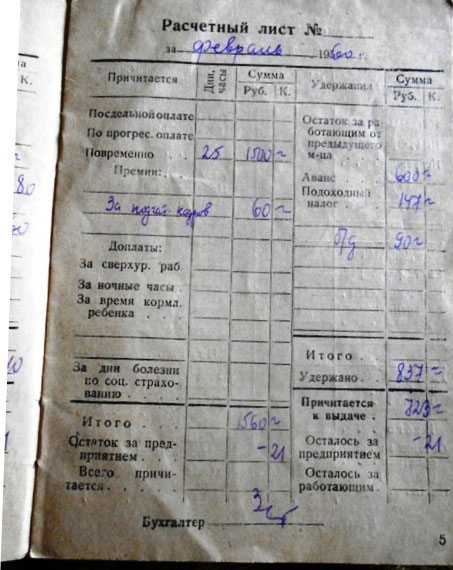 Расчетный лист №
за февраль 1960 г.
Причитается
Дни, часы
Сумма
Руб. К.
Удержания
Сумма
Руб. К.
Посдельной оплате
По прогрес. оплате
Повременно . . 25 1500 ~
Премии: . . .
За подгот. кадров 60 ~
Доплаты:
За сверхур. раб.
За ночные часы .
За время кормл.
ребенка . . .
За дни болезни
по соц. страхо-
ванию . . . .
Итого . . . 1560 ~
Остаток за пред-
приятием . . . -21
Всего причи-
тается . . . .
Остаток за ра-
ботающим от
предыдущего
м-ца . . .
Аванс . . . 600 ~
Подоходный
налог . . . 147 ~
90 ~
Итого .
Удержано . 837 ~
Причитается
к выдаче . . 723 ~
Осталось за
предприятием -21
Осталось за
работающим .
Бухгалтер
5
80